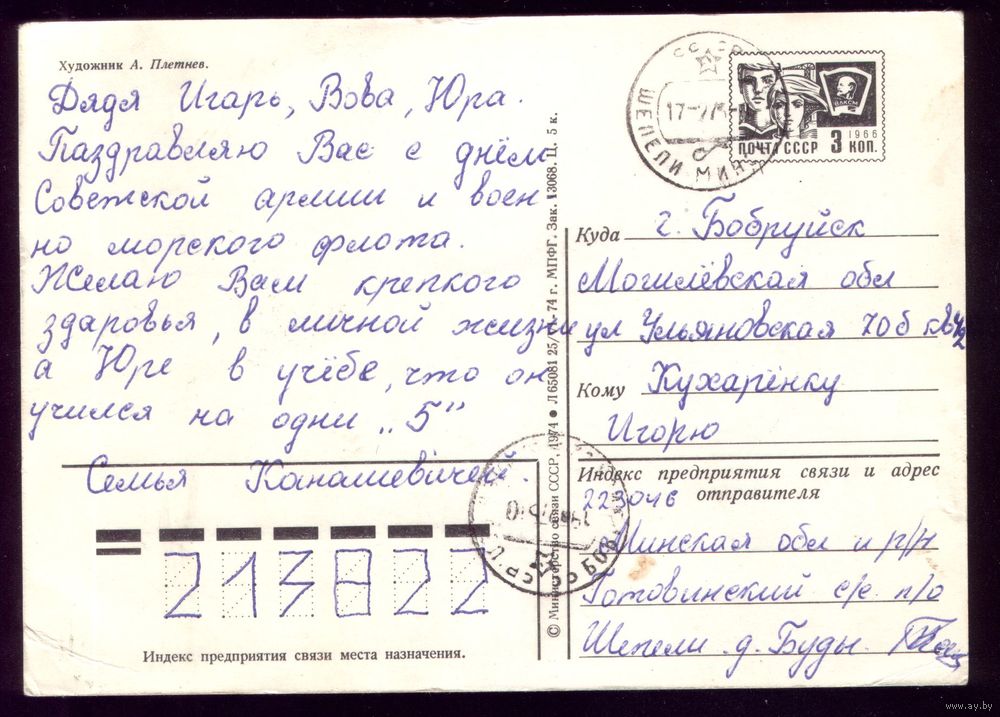 Художник А. Плетнев.
Дядя Игарь, Вова, Юра.
Паздравляю Вас с днём
Советской армии и воен
но морского флота.
Желаю Вам крепкого
здаровья, в личной жизни
а Юре в учёбе, что он
учился на одни „5"
Семья Канашевичей.
213822
Индекс предприятия связи места назначения.
© Министерство связи СССР, 1974 ● Л 65081 25/ IX- 74 г. МПФГ. Зак. 13068. Ц. 5 к.
СССР
ШЕПЕЛИ МИНС
17-2
ВЛКСМ
1966
ПОЧТА СССР 3 КОП.
Куда г. Бобруйск
Могилёвская обл
ул Ульяновская 70б кв 42
Кому Кухарёнку
Игорю
Индекс предприятия связи и адрес
223046 отправителя
Минская обл и р/н
Готовинский с/с п/о
Шепели д. Буды
www.ay.by